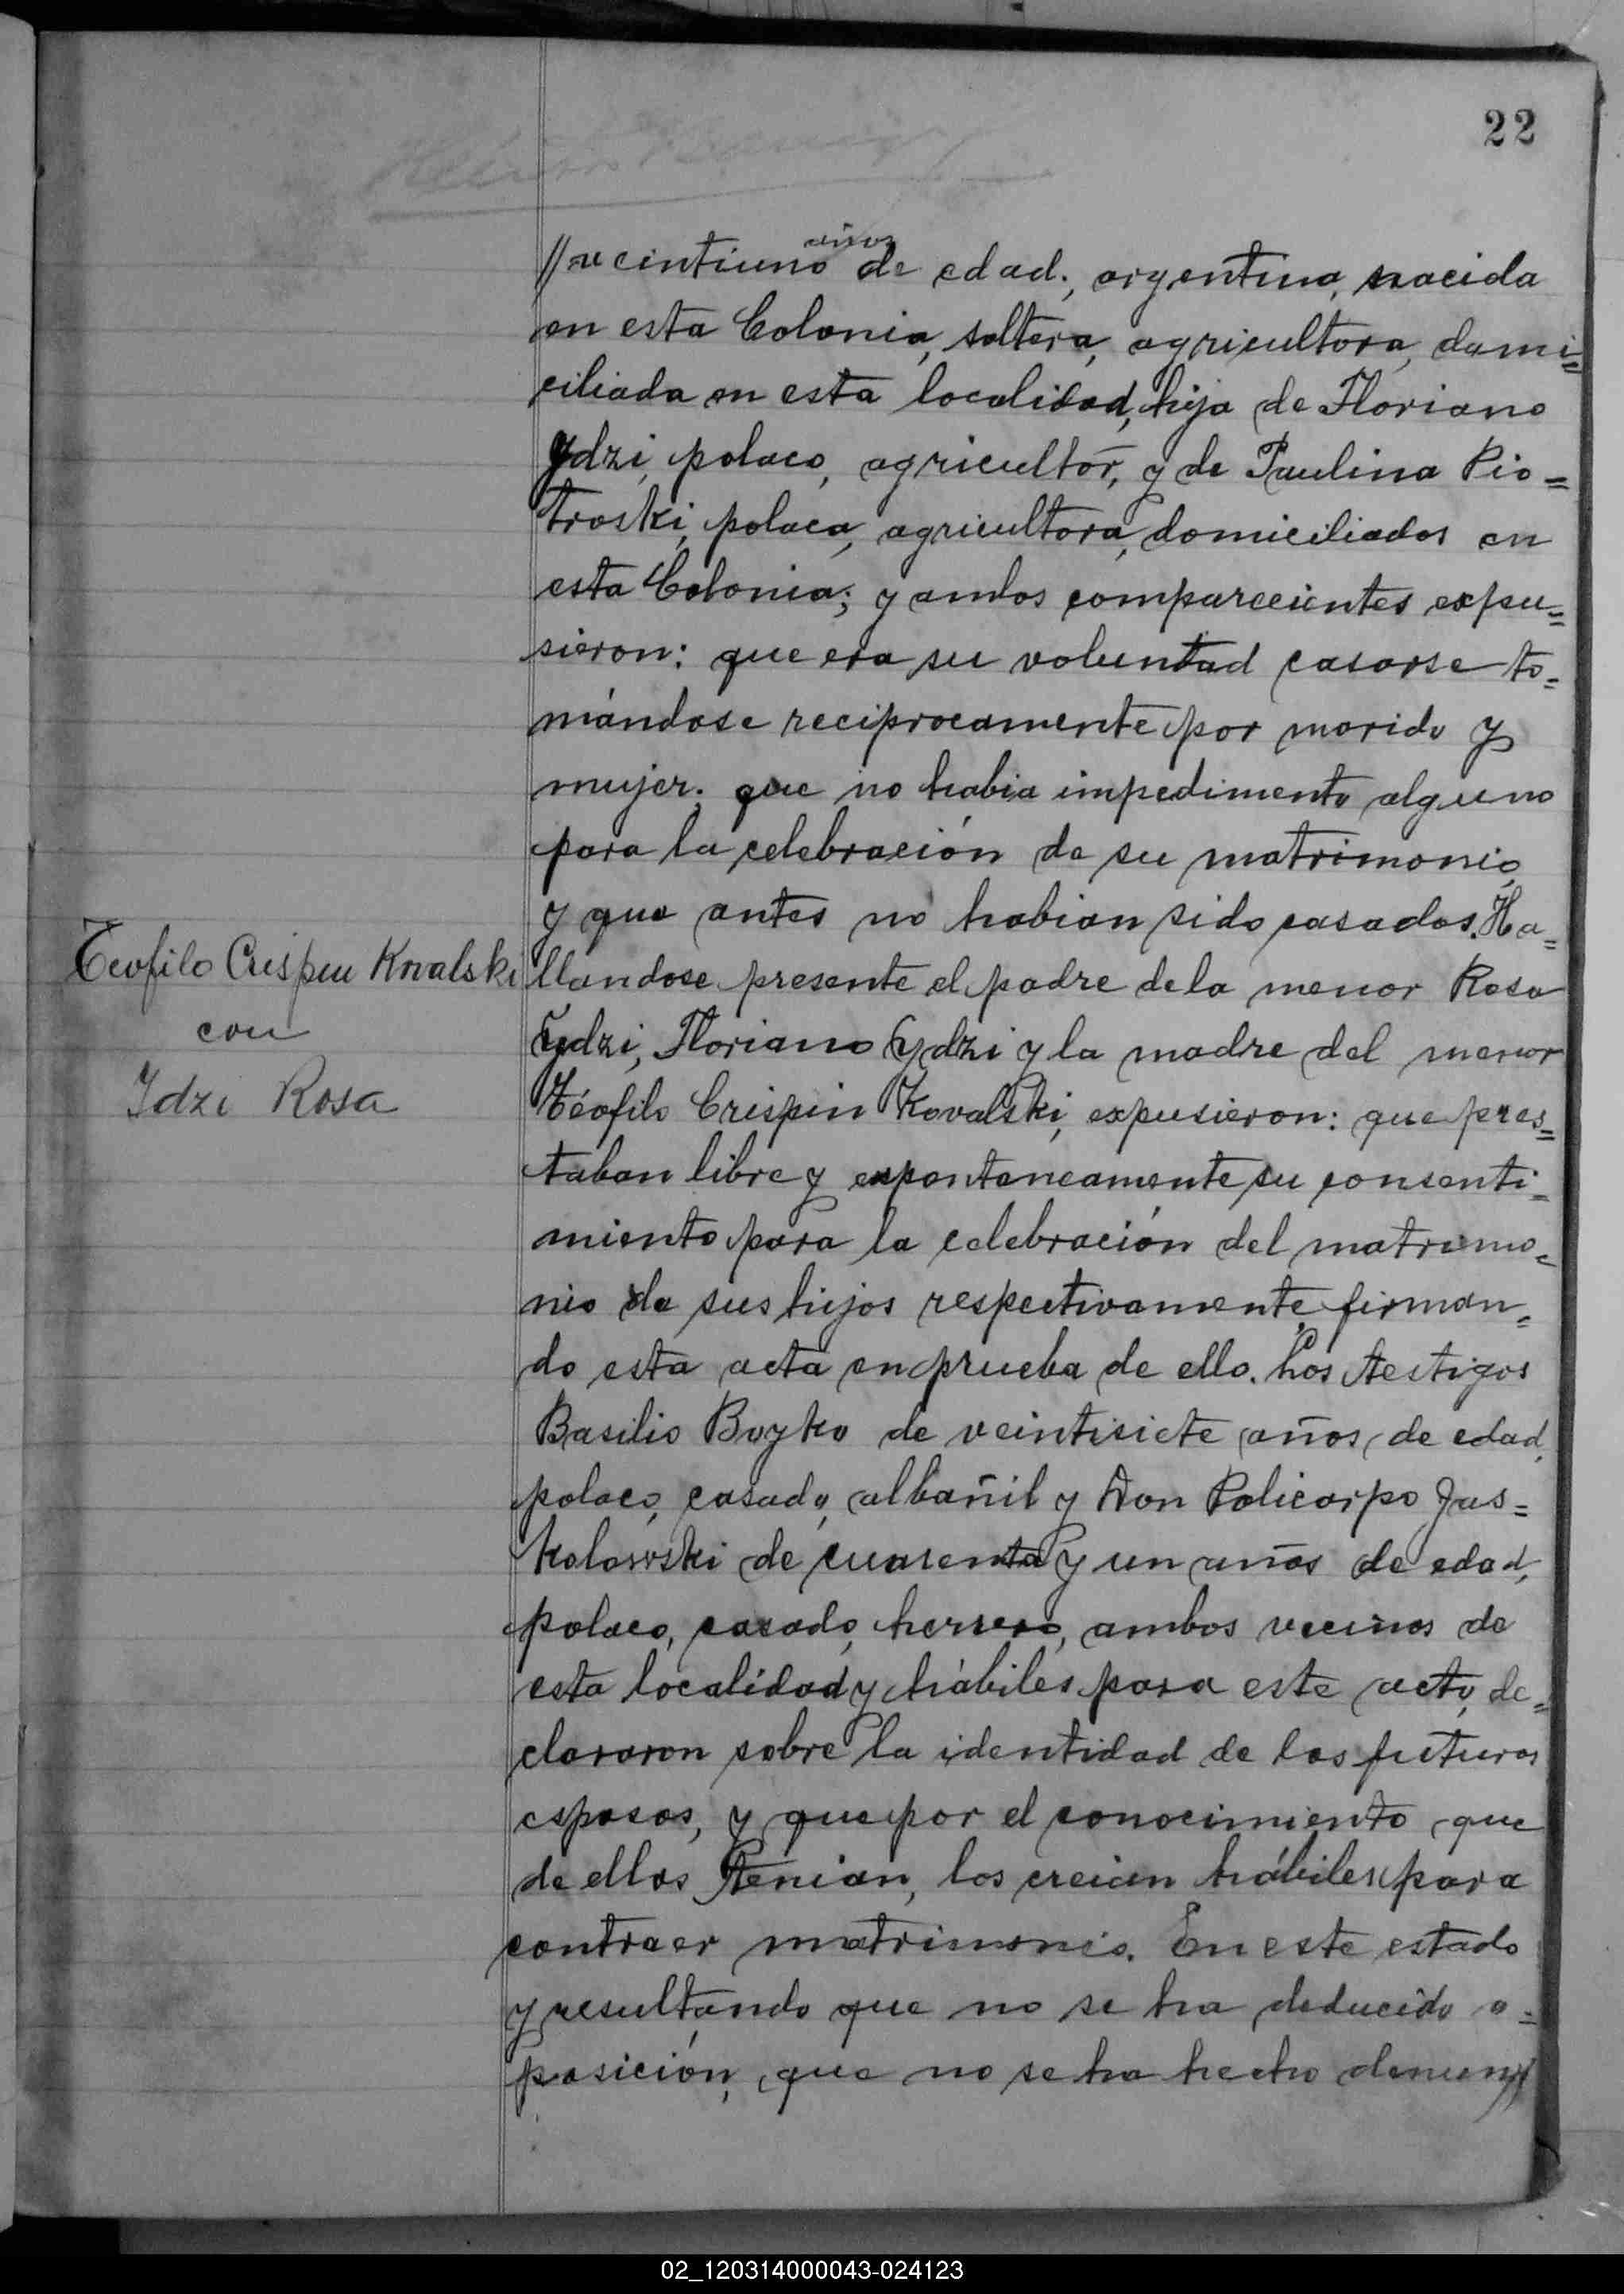 22
años
//veintiuno de edad., argentina, nacida
en esta Colonia, soltera, agricultora, domi=
ciliada en esta localidad, hija de Floriano
Ydzi, polaco, agricultor, y de Paulina Pio=
troski, polaca, agricultora, domiciliados en
esta Colonia; y ambos comparecientes expu=
sieron: que era su voluntad casarse to=
mándose reciprocamente por marido y
mujer; que no habia impedimento alguno
para la celebración de su matrimonio
y que antes no habian sido casados. Ha=
Teofilo Crispin Kovalski
con
Idzi Rosa
llandose presente el padre de la menor Rosa
Ydzi, Floriano Ydzi y la madre del menor
Téofilo Crispin Kovalski, expusieron: que pres=
taban libre y espontaneamente su consenti=
miento para la celebración del matrimo=
nio de sus hijos respectivamente, firman=
do esta acta en prueba de ello. Los testigos
Basilio Boyko de veintisiete años de edad,
polaco, casado, albañil y Don Policarpo Jas=
kolowski de cuarenta y un años de edad,
polaco, casado, herrero, ambos vecinos de
esta localidad y hábiles para este acto, de=
clararon sobre la identidad de los futuros
esposos, y que por el conocimiento que
de ellos tenian, los creian hábiles para
contraer matrimonio. En este estado
y resultando que no se ha deducido o=
posición, que no se ha hecho denun//
02_120314000043-024123